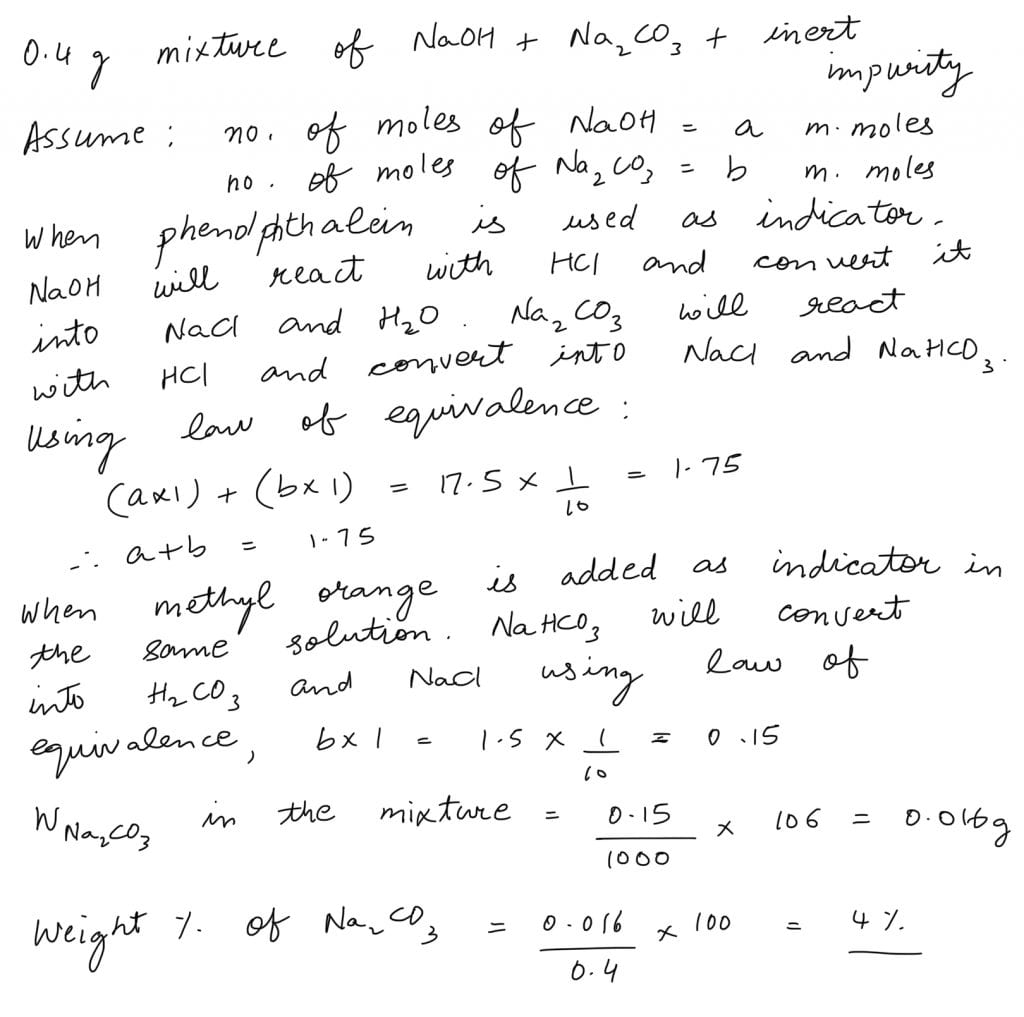 0.4 g mixture of NaOH + Na₂CO₃ + inert
impurity
Assume : no. of moles of NaOH = a m.moles
no. of moles of Na₂CO₃ = b m. moles
When phenolphthalein is used as indicator.
NaOH will react with HCl and convert it
into NaCl and H₂O. Na₂CO₃ will react
with HCl and convert into NaCl and NaHCO₃.
Using law of equivalence :
(a×1) + (b×1) = 17.5 × 1/10 = 1.75
∴ a+b = 1.75
When methyl orange is added as indicator in
the same solution. NaHCO₃ will convert
into H₂CO₃ and NaCl using law of
equivalence, b×1 = 1.5 × 1/10 = 0.15
W Na₂CO₃ in the mixture = 0.15/1000 × 106 = 0.016g
Weight %. of Na₂CO₃ = 0.016/0.4 × 100 = 4 %.